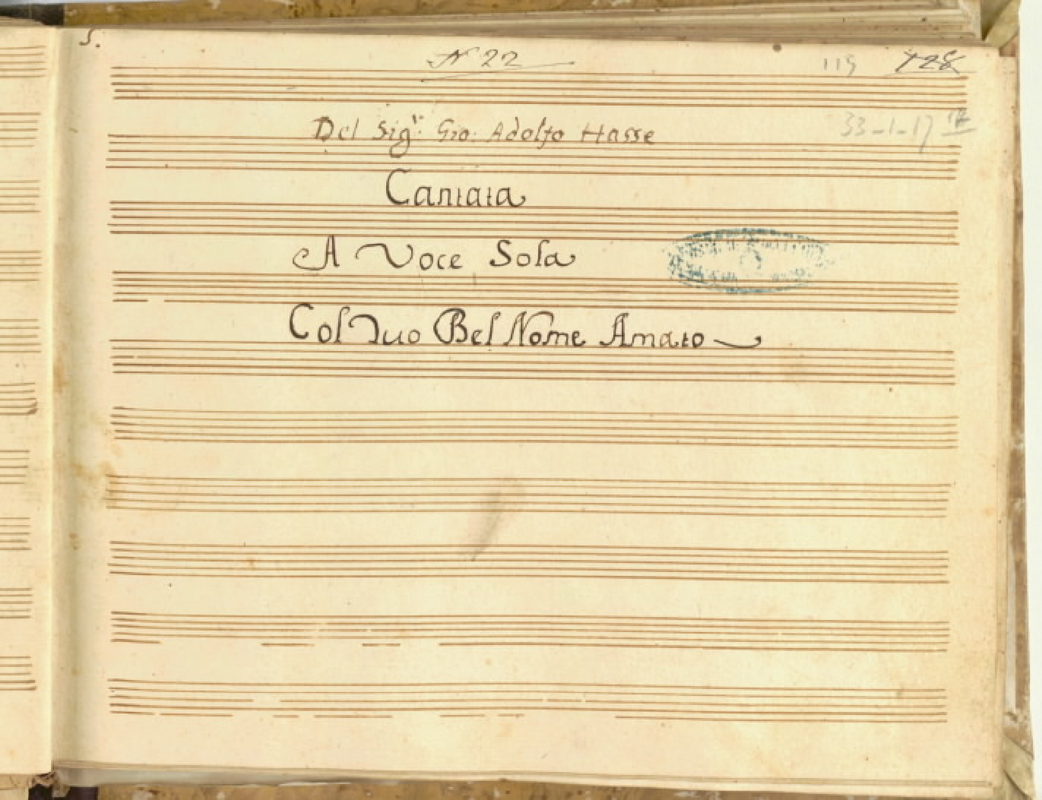 5.
N 22
119 128
Del Sig.r Gio: Adolfo Hasse
33-1-17
Cantata
A Voce Sola
Col Tuo Bel Nome Amato